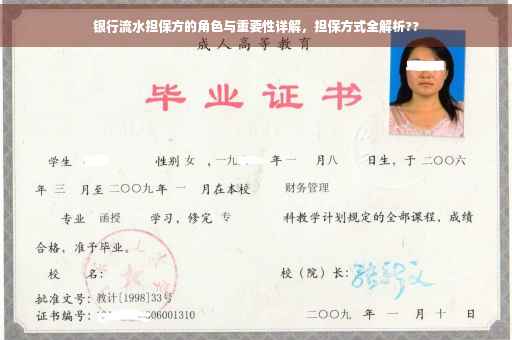 银行流水担保方的角色与重要性详解，担保方式全解析??
成人高等教育
毕业证书
学生 性别 女 ，一九 年 一 月八 日生，于 二〇〇六
年 三 月至 二〇〇九 年 一 月在本校 财务管理
专业 函授 学习，修完 专 科教学计划规定的全部课程，成绩
合格，准予毕业。
校 名： 校（院）长：
批准文号：教计[1998]33号
证书编号： 06001310 二〇〇九 年 一 月 十 日